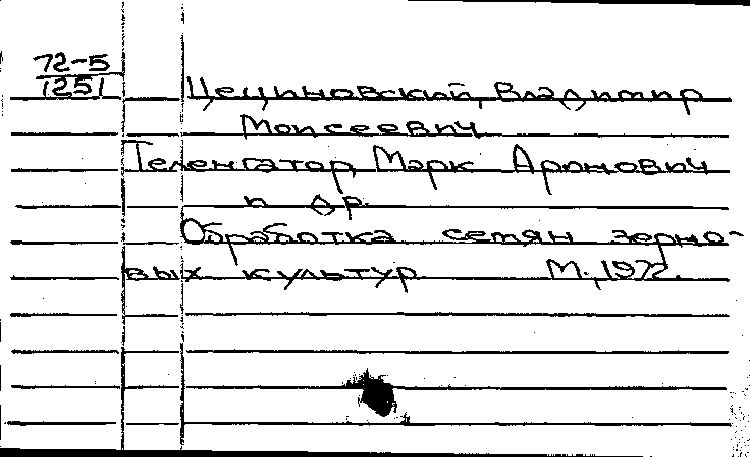 72-5
1251
Цециновский, Владимир
Моисеевич
Теленгатор, Марк Аронович
и др.
Обработка семян зерно-
вых культур. М., 1972.